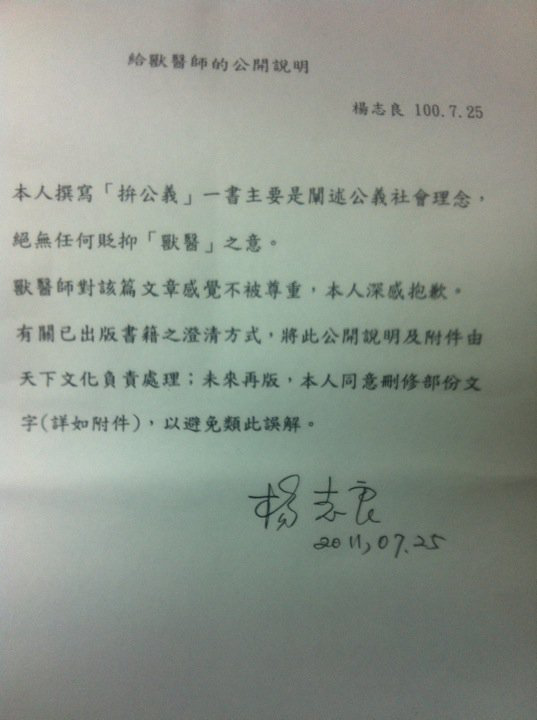 給獸醫師的公開說明
楊志良 100.7.25
本人撰寫「拚公義」一書主要是闡述公義社會理念，
絕無任何貶抑「獸醫」之意。
獸醫師對該篇文章感覺不被尊重，本人深感抱歉。
有關已出版書籍之澄清方式，將此公開說明及附件由
天下文化負責處理；未來再版，本人同意刪修部份文
字(詳如附件)，以避免類此誤解。
楊志良
2011,07.25